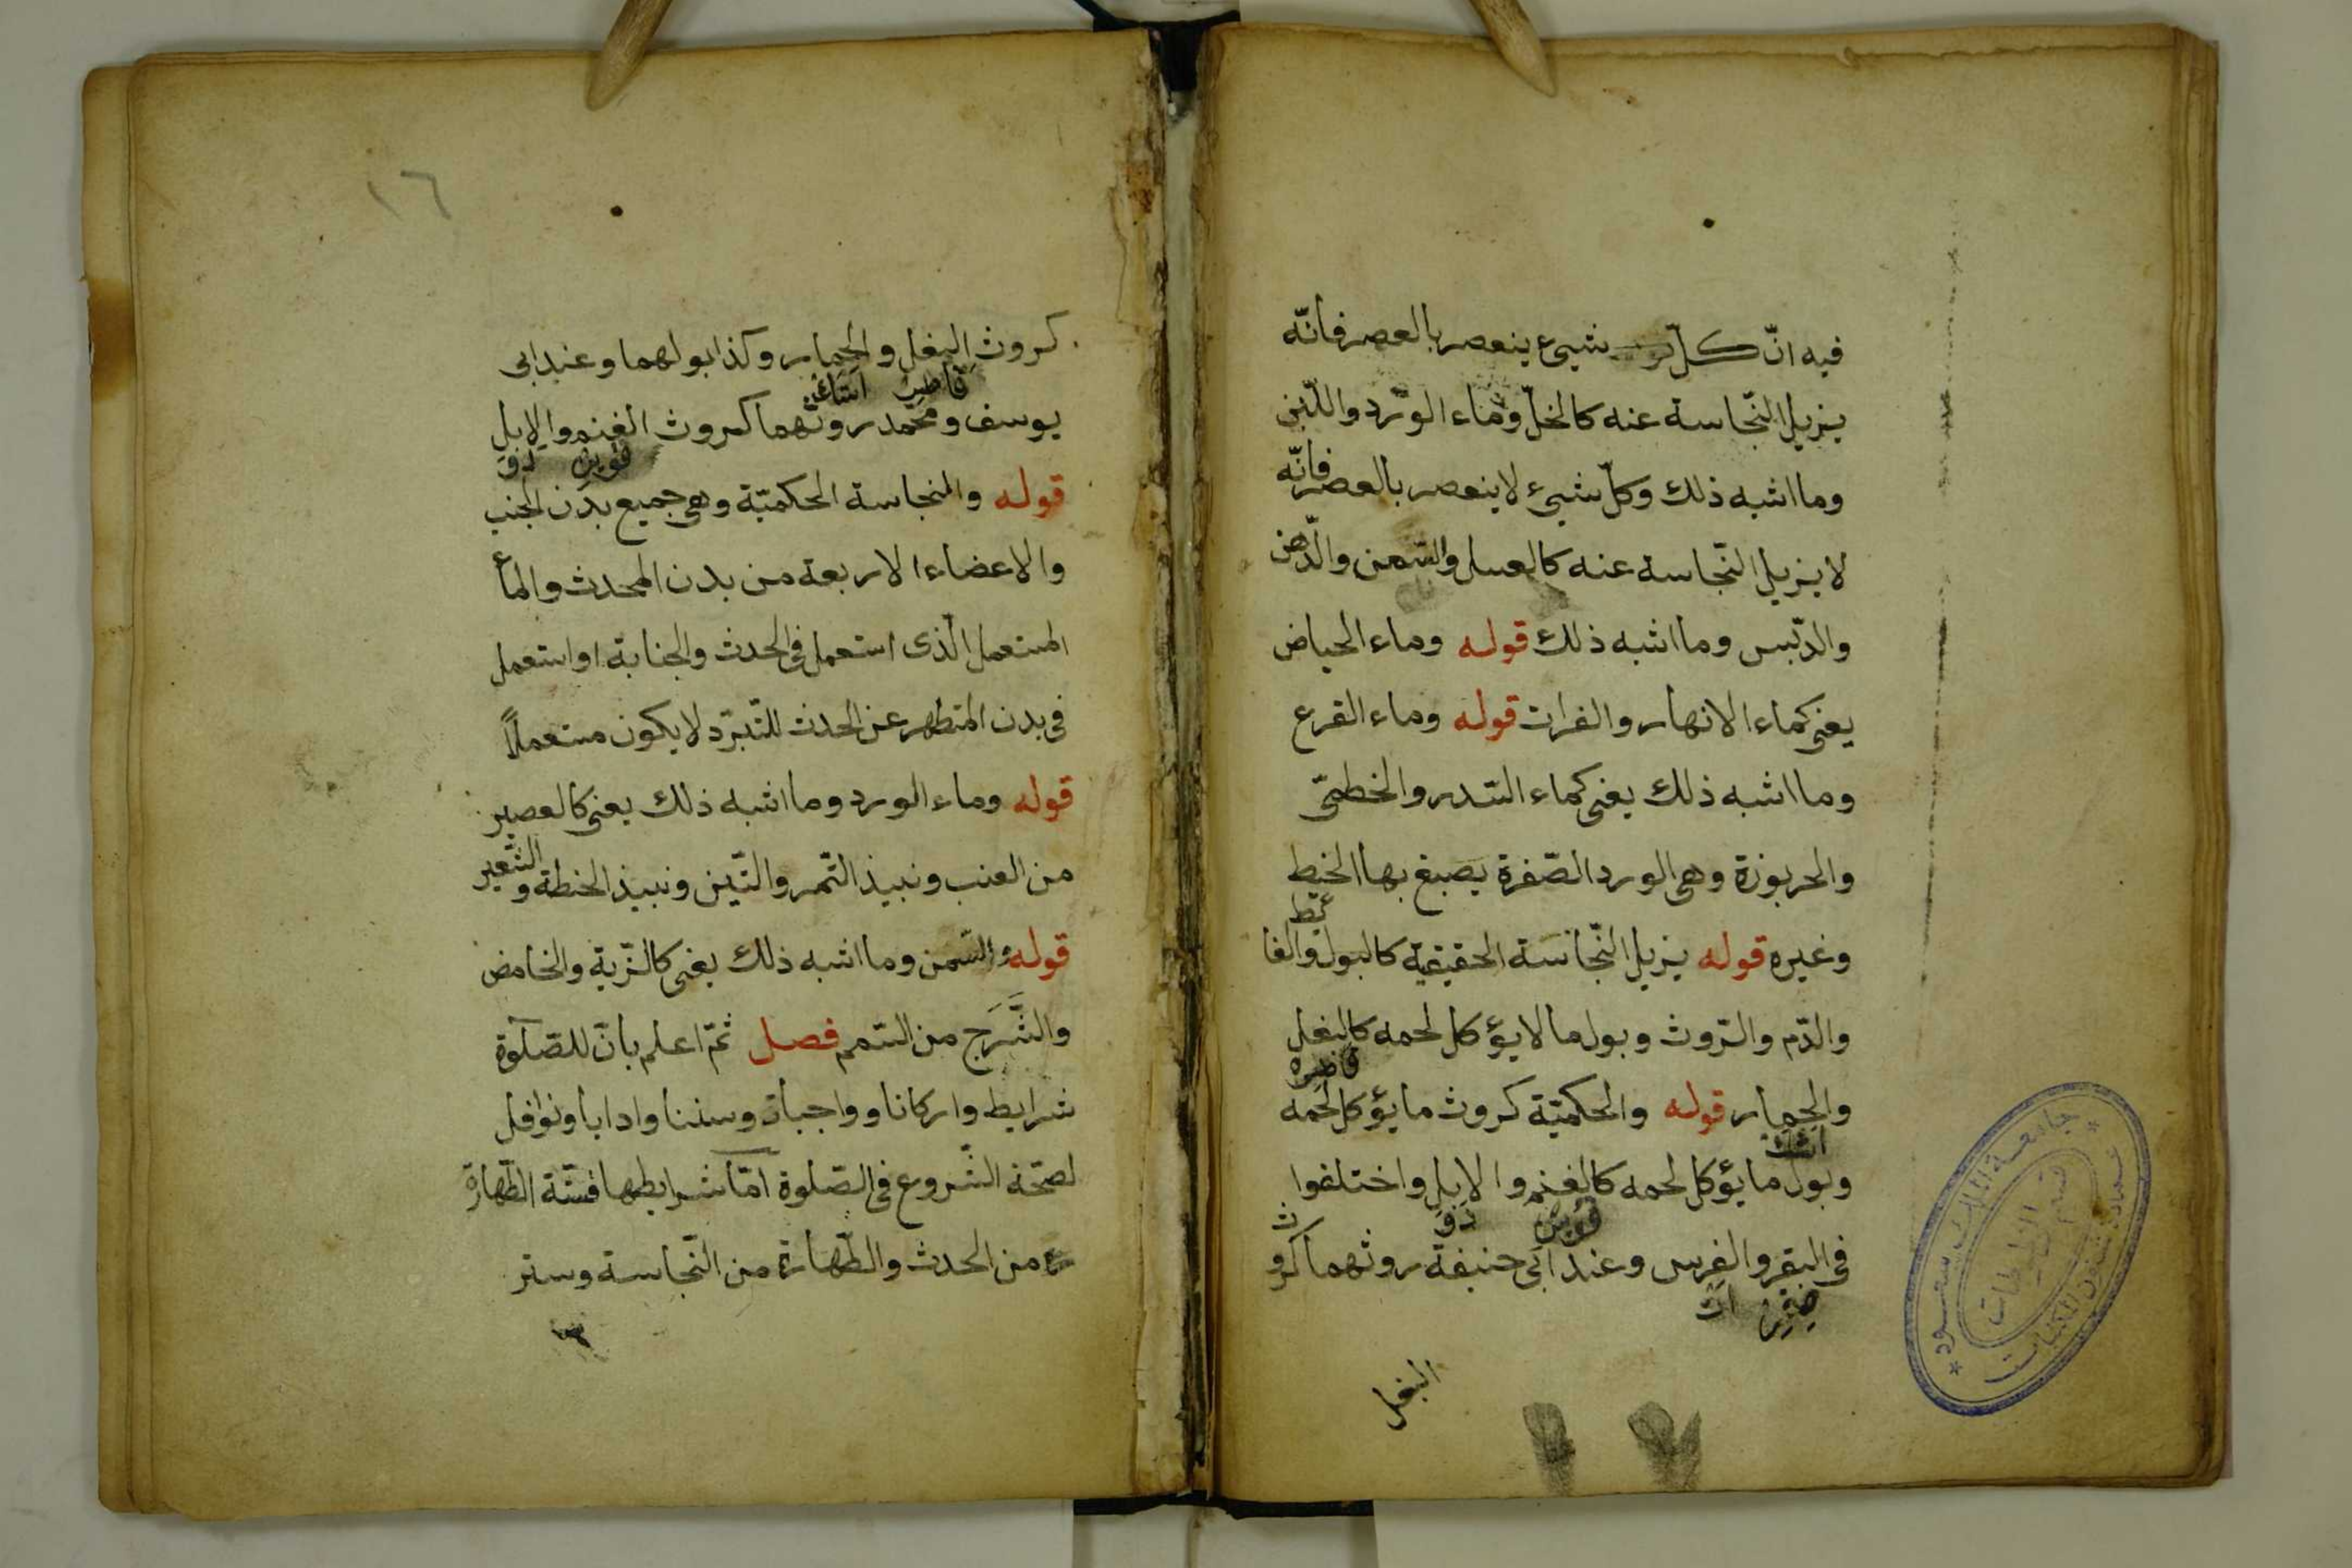 فيه انّ كلّ شيىء ينعصر بالعصر فانّه
يزيل النّجاسة عنه كالخلّ وماء الورد واللّبن
وما اشبه ذلك وكلّ شيىء لا ينعصر بالعصر فانّه
لا يزيل النّجاسة عنه كالعسل والسّمن والدّهن
والدّبس وما اشبه ذلك قوله وماء الحياض
يعنى كماء الانهار والفرات قوله وماء القرع
وما اشبه ذلك يعنى كماء السّدر والخطمىّ
والحربوزة وهى الورد الصّفرة يصبغ بها الخيط
وغيره قوله يزيل النّجاسة الحقيقية كالبول والغا
ئط
والدّم والرّوث وبول ما لا يؤكل لحمه كالبغل
قاطره
والحمار قوله والحكميّة كروث ما يؤكل لحمه
اشك
وبول ما يؤكل لحمه كالغنم والابل واختلفوا
قوين دوه
فى البقر والفرس وعند ابى حنيفة روثهما كرو
ث
صغير ات
البغل
١٦
كروث البغل والحمار وكذا بولهما وعند ابى
قاطر
يوسف ومحمّد روثهما كروث الغنم والابل
قوين دوه
قوله والنجاسة الحكميّة وهى جميع بدن الجنب
والاعضاء الاربعة من بدن المحدث والماء
المستعمل الّذى استعمل فى الحدث والجنابة او استعمل
فى بدن المتطهر عن الحدث للتّبرّد لا يكون مستعملاً
قوله وماء الورد وما اشبه ذلك يعنى كالعصير
من العنب ونبيذ التّمر والتّين ونبيذ الحنطة والشّعير
قوله والسّمن وما اشبه ذلك يعنى كالزّبة والخامض
والشَّرَج من السّمم فصل ثمّ اعلم بانّ للصّلوة
شرايط واركانا وواجبات وسننا وادابا ونوافل
لصحّة الشّروع فى الصّلوة امّا شرايطها فستّة الطّهارة
من الحدث والطّهارة من النّجاسة وستر
جامعة الملك سعود
عمادة شئون المكتبات
قسم المخطوطات